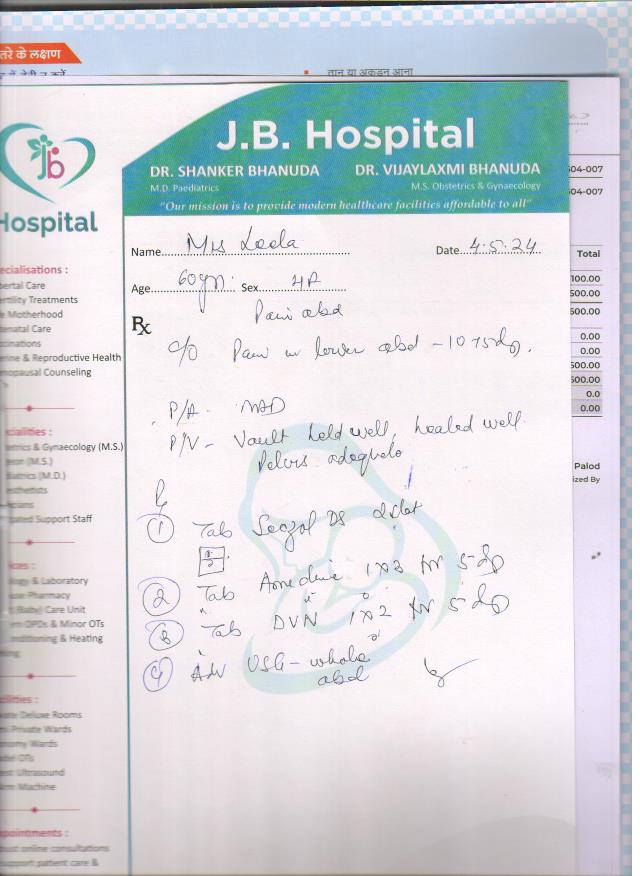 तरे के लक्षण
तान या अकड़न आना
J.B. Hospital
DR. SHANKER BHANUDA DR. VIJAYLAXMI BHANUDA
M.D. Paediatrics M.S. Obstetrics & Gynaecology
"Our mission is to provide modern healthcare facilities affordable to all"
jb
Hospital
Name Mrs Leela Date 4.5.24
Age 60yr. Sex
Pain abd
Rx
c/o Pain in lower abd -10
P/A- NAD
P/V- Vault held well, healed well
Pelvis adequate
1 Tab DS
2 Tab 1x3 for 5
3 Tab DVN 1x2 for 5
4 Adv USG - whole
abd
ecialisations :
ertal Care
ertility Treatments
Motherhood
enatal Care
cinations
rine & Reproductive Health
nopausal Counseling
cialities :
tetrics & Gynaecology (M.S.)
eon (M.S.)
diatrics (M.D.)
esthetists
cians
ated Support Staff
ices :
ology & Laboratory
use Pharmacy
(Baby) Care Unit
rn OPDs & Minor OTs
onditioning & Heating
ilities :
vate Deluxe Rooms
mi Private Wards
nomy Wards
del OTs
est Ultrasound
Arm Machine
ppointments :
oust online consultations
support patient care &
504-007
504-007
Total
100.00
500.00
600.00
0.00
0.00
600.00
600.00
0.0
0.00
Palod
ized By